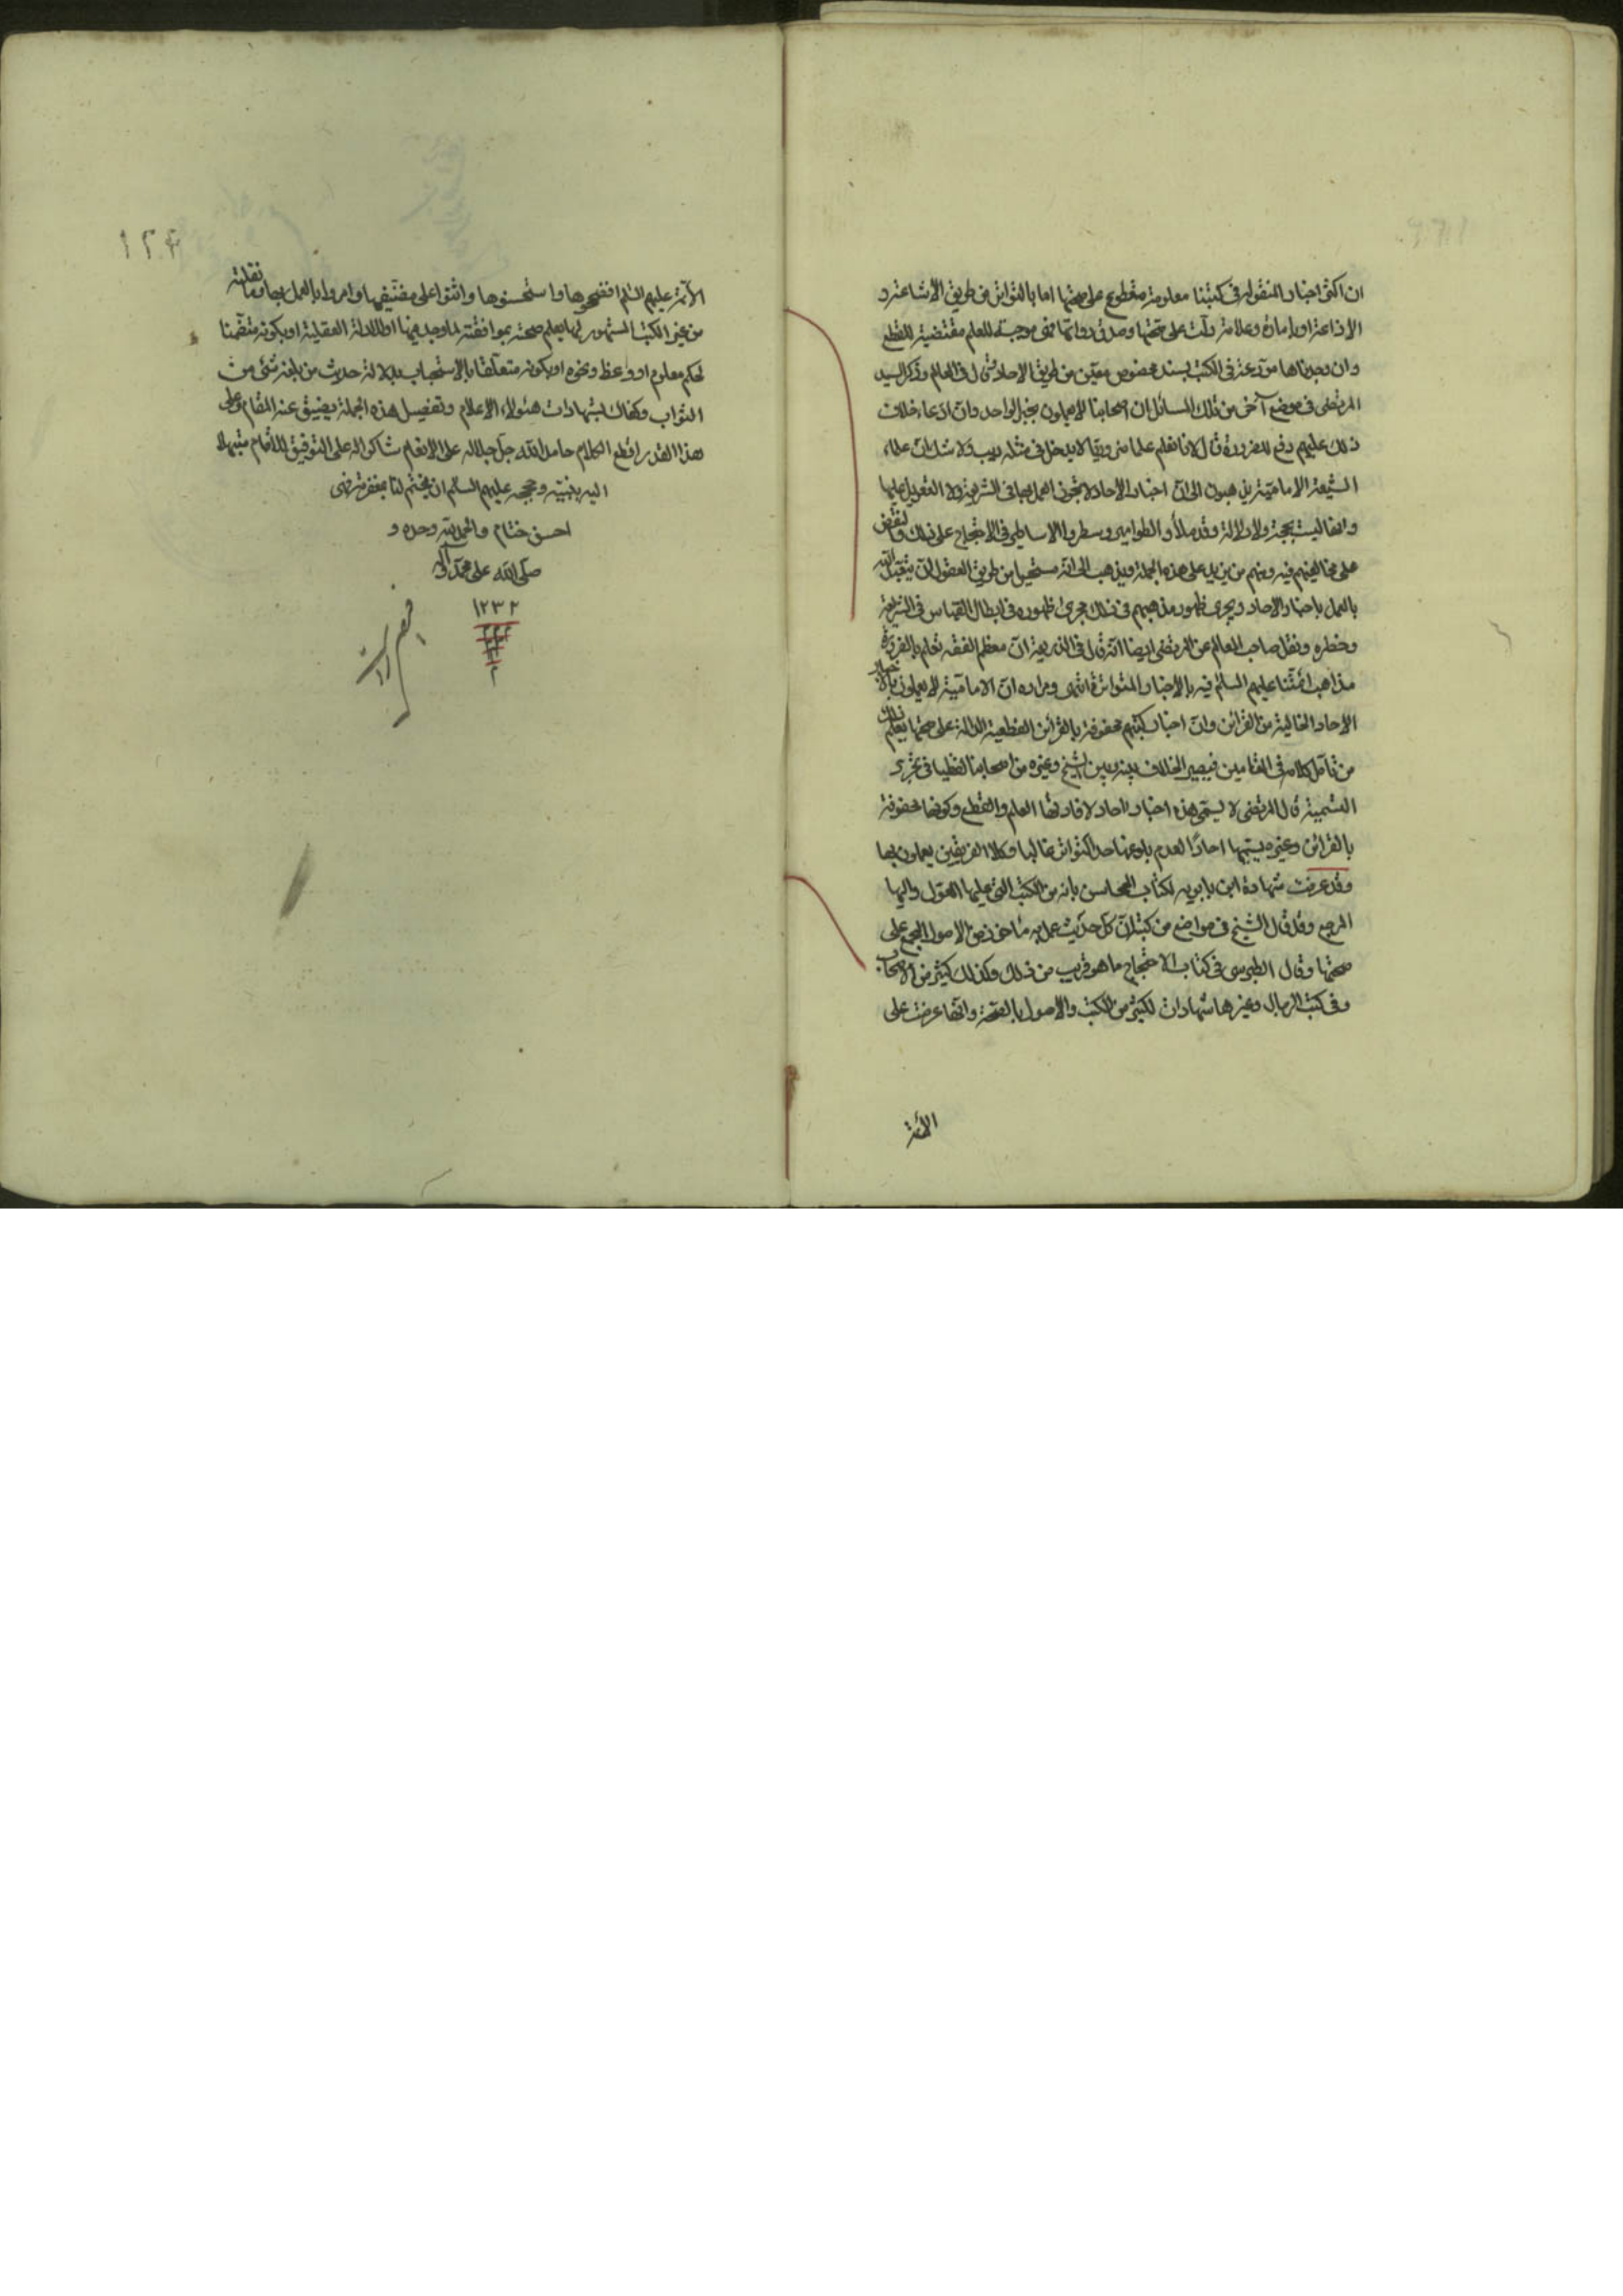 ان اكثر اخبارنا المنقولة فى كتبنا معلومة مقطوع على صحتها اما بالتواتر من طريق الاشاعة و
الاذاعة او بامارة وعلامة دلت على صحتها وصدق رواتها فهى موجبة للعلم مقتضية للقطع
وان وجدناها مودعة فى الكتب بسند مخصوص معين من طريق الاحاد وذكر السيد
المرتضى فى موضع آخر من تلك المسائل ان اصحابنا لا يعملون بخبر الواحد وان ادعاء خلاف
ذلك عليهم دفع للضرورة قال لانا نعلم علما ضروريا لا يدخل فى مثله ريب ولا شك ان علماء
الشيعة الامامية يذهبون الى ان اخبار الاحاد لا يجوز العمل بها فى الشريعة ولا التعويل عليها
وانها ليست بحجة ولا دلالة وقد ملأوا الطوامير وسطروا الاساطير فى الاحتجاج على ذلك والنقض
على مخالفيهم فيه ومنهم من يزيد على هذه الجملة ويذهب الى انه مستحيل من طريق العقول ان يتعبد الله
بالعمل باخبار الاحاد ويجرى ظهور مذهبهم فى ذلك مجرى ظهوره فى ابطال القياس فى الشريعة
وخطره ونقل صاحب المعالم عن المرتضى ايضا انه قال فى الذريعة ان معظم الفقه تعلم بالضرورة
مذاهب ائمتنا عليهم السلم فيه بالاخبار المتواترة انتهى ومراده ان الامامية لا يعملون بالاخبار
الاحاد الخالية من القرائن وان اخبار كتبهم محفوفة بالقرائن القطعية الدالة على صحتها يعلم ذلك
من تامل كلامه فى المقامين فيصير الخلاف بينه وبين الشيخ وغيره من اصحابنا لفظيا فى مجرد
التسمية قال المرتضى لا يسمى هذه اخبار احاد لافادتها العلم والقطع وكونها محفوفة
بالقرائن وغيره يسميها احادًا لعدم بلوغها حد التواتر غالبا وكلا الفريقين يعملون بها
وقد عرفت شهادة ابن بابويه لكتاب المحاسن بانه من الكتب التى عليها المعول واليها
المرجع وقد قال الشيخ فى مواضع من كتبه ان كل حديث عمل به ماخوذ من الاصول المجمع على
صحتها وقال الطبرسى فى كتاب الاحتجاج ما هو قريب من ذلك وكذلك كثير من الاصحاب
وفى كتب الرجال وغيرها شهادات لكثير من الكتب والاصول بالصحة وانها عرضت على
الائمة
١٢٤
الائمة عليهم السلم فصححوها واستحسنوها واثنوا على مصنفيها وامروا بالعمل بها وما نقلته
من غير الكتب المشهورة بها يعلم صحته بموافقته لما وجد فيها او للادلة العقلية او بكونه متضمنا
لحكم معلوم او وعظ ونحوه او بكونه متعلقا بالاستحباب بدلالة حديث من بلغه شئ من
الثواب وكفاك بشهادات هئولاء الاعلام وتفصيل هذه الجملة يضيق عنه المقام وعلى
هذا القدر اقطع الكلام حامدا لله جل جلاله على الانعام شاكرا له على التوفيق للاتمام مبتهلا
اليه بنبيه وحججه عليهم السلم ان يختم لنا بمغفرته فهى
احسن ختام والحمد لله وحده و
صلى الله على محمد وآله
١٢٣٢